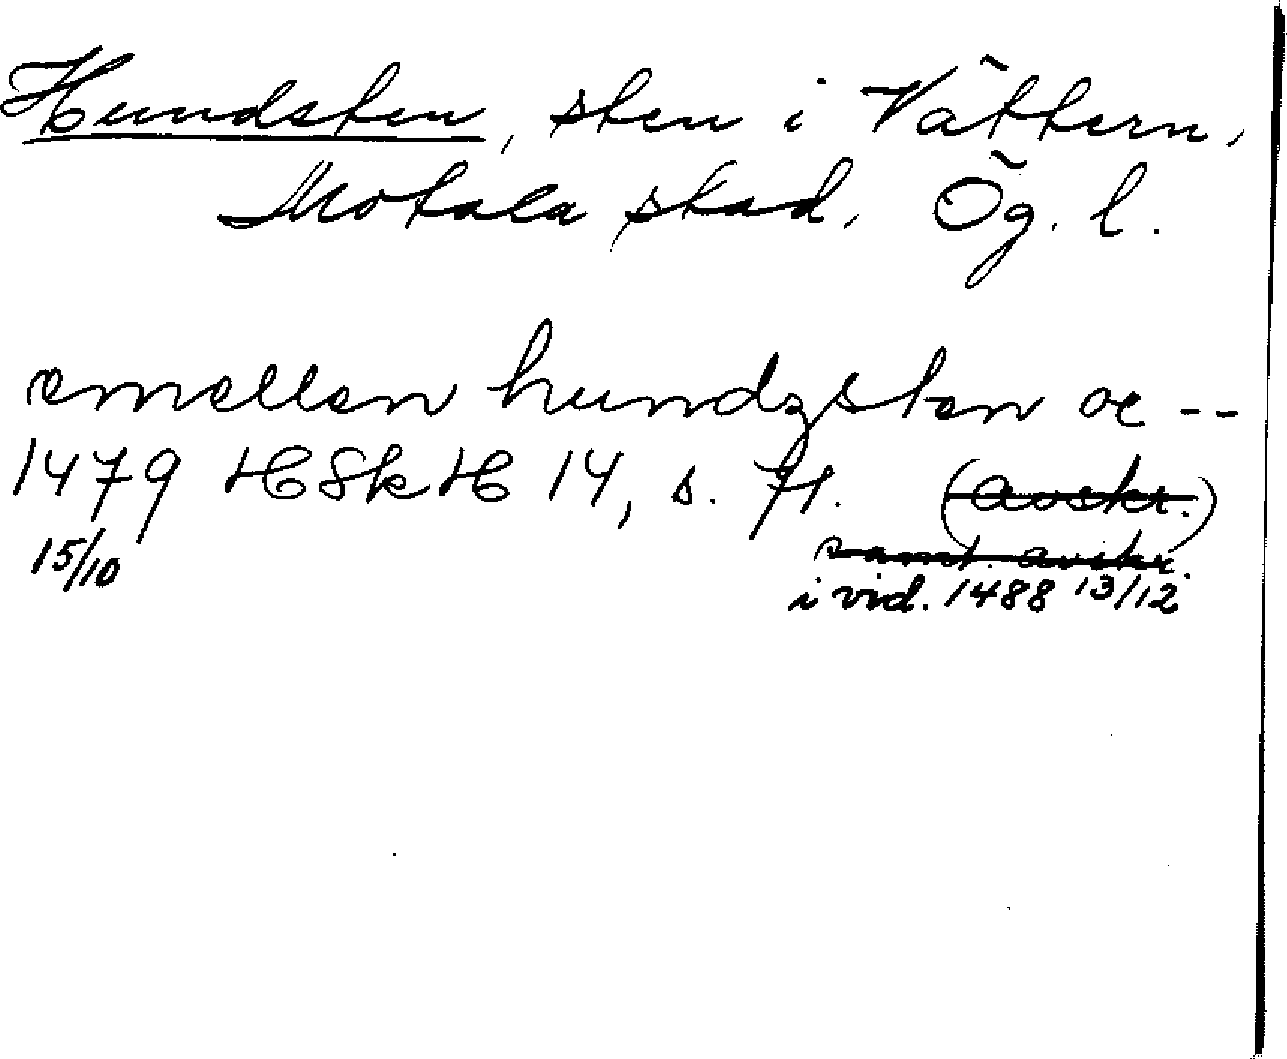 Hundsten, sten i Vättern,
Motala stad, Ög. l.
emellen hundzsten oc --
1479 HSkH 14, s. 71. (avskr.)
15/10
samt. avskr.
i vid. 1488 13/12